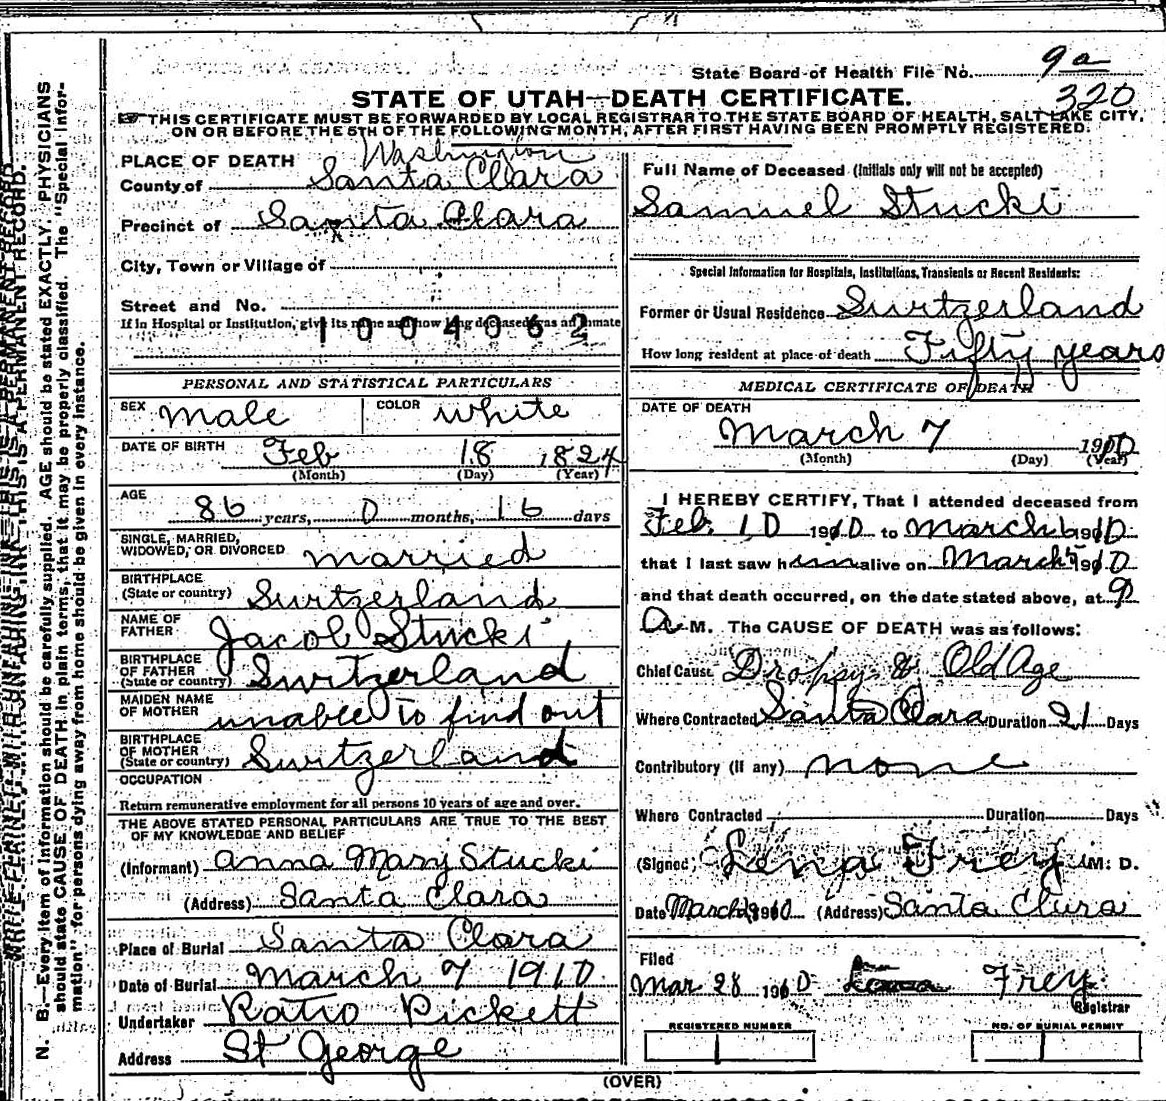 State Board of Health File No. 9a
320
STATE OF UTAH—DEATH CERTIFICATE.
THIS CERTIFICATE MUST BE FORWARDED BY LOCAL REGISTRAR TO THE STATE BOARD OF HEALTH, SALT LAKE CITY,
ON OR BEFORE THE 5TH OF THE FOLLOWING MONTH, AFTER FIRST HAVING BEEN PROMPTLY REGISTERED.
N. B.—Every item of information should be carefully supplied. AGE should be stated EXACTLY. PHYSICIANS
should state CAUSE OF DEATH in plain terms, that it may be properly classified. The "Special Infor-
mation" for persons dying away from home should be given in every instance.
PLACE OF DEATH Washington
County of Santa Clara
Precinct of Santa Clara
City, Town or Village of
Street and No.
If in Hospital or Institution, give its name and how long deceased was an inmate
1004062
PERSONAL AND STATISTICAL PARTICULARS
SEX Male COLOR White
DATE OF BIRTH Feb 18 1824
(Month) (Day) (Year)
AGE 86 years, 0 months, 16 days
SINGLE, MARRIED,
WIDOWED, OR DIVORCED married
BIRTHPLACE
(State or country) Switzerland
NAME OF
FATHER Jacob Stucki
BIRTHPLACE
OF FATHER
(State or country) Switzerland
MAIDEN NAME
OF MOTHER unable to find out
BIRTHPLACE
OF MOTHER
(State or country) Switzerland
OCCUPATION
Return remunerative employment for all persons 10 years of age and over.
THE ABOVE STATED PERSONAL PARTICULARS ARE TRUE TO THE BEST
OF MY KNOWLEDGE AND BELIEF
(Informant) Anna Mary Stucki
(Address) Santa Clara
Place of Burial Santa Clara
Date of Burial March 9 1910
Undertaker Ratio Pickett
Address St George
Full Name of Deceased (Initials only will not be accepted)
Samuel Stucki
Special Information for Hospitals, Institutions, Transients or Recent Residents:
Former or Usual Residence Switzerland
How long resident at place of death Fifty years
MEDICAL CERTIFICATE OF DEATH
DATE OF DEATH
March 7 1910
(Month) (Day) (Year)
I HEREBY CERTIFY, That I attended deceased from
Feb. 10 1910 to March 6 1910
that I last saw him alive on March 5 1910
and that death occurred, on the date stated above, at 9
A M. The CAUSE OF DEATH was as follows:
Chief Cause Dropsy & Old Age
Where Contracted Santa Clara Duration 21 Days
Contributory (if any) none
Where Contracted Duration Days
(Signed) Lena Frey M. D.
Date March 1910 (Address) Santa Clara
Filed
Mar 28 1910 Lena Frey
Registrar
REGISTERED NUMBER
NO. OF BURIAL PERMIT
(OVER)